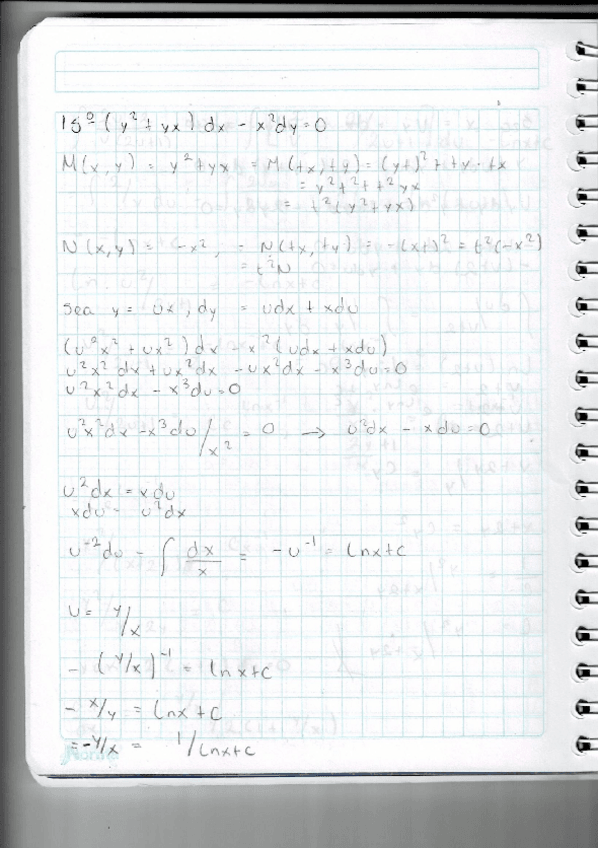 15º (y² + yx) dx - x²dy = 0
M(x,y) = y² + yx = M(tx,ty) = (yt)² + ty·tx
= y²t² + t²yx
= t²(y² + yx)
N(x,y) = -x², = N(tx,ty) = -(xt)² = t²(-x²)
= t²N
Sea y = ux, dy = udx + xdu
(u²x² + ux²) dx - x²(udx + xdu)
u²x²dx + ux²dx - ux²dx - x³du = 0
u²x²dx - x³du = 0
u²x²dx - x³du / x² = 0 → u²dx - xdu = 0
u²dx = xdu
xdu - u²dx
u⁻²du - ∫ dx/x = -u⁻¹ = lnx + c
u = y/x
- (y/x)⁻¹ = lnx + c
- x/y = lnx + c
= -y/x = 1/lnx+c